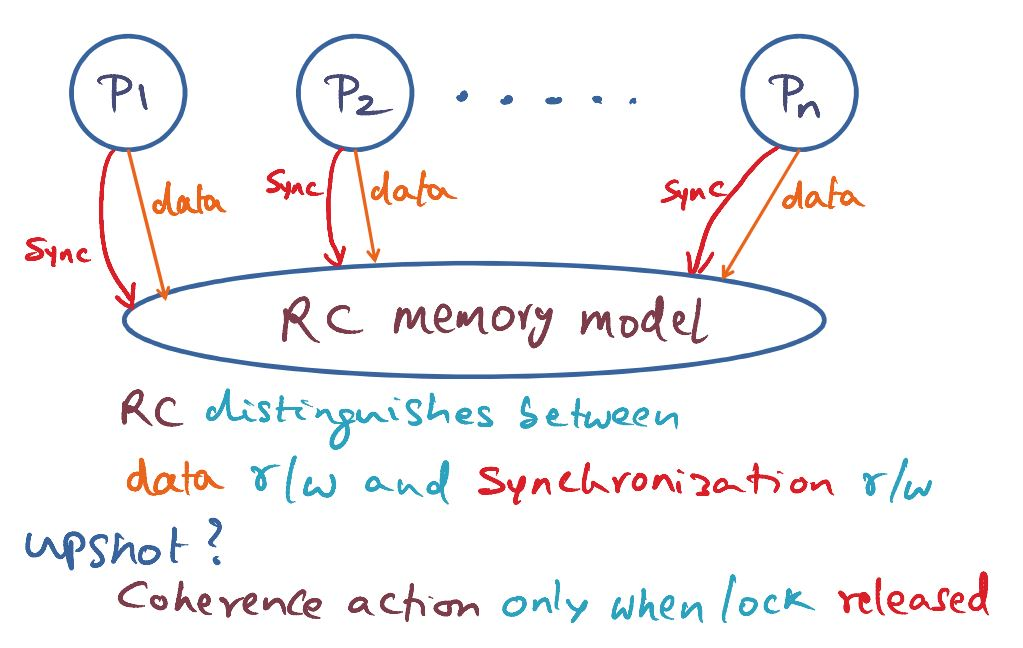 P1 P2 ..... Pn
sync data sync data sync data
RC memory model
RC distinguishes between
data r/w and synchronization r/w
upshot?
Coherence action only when lock released